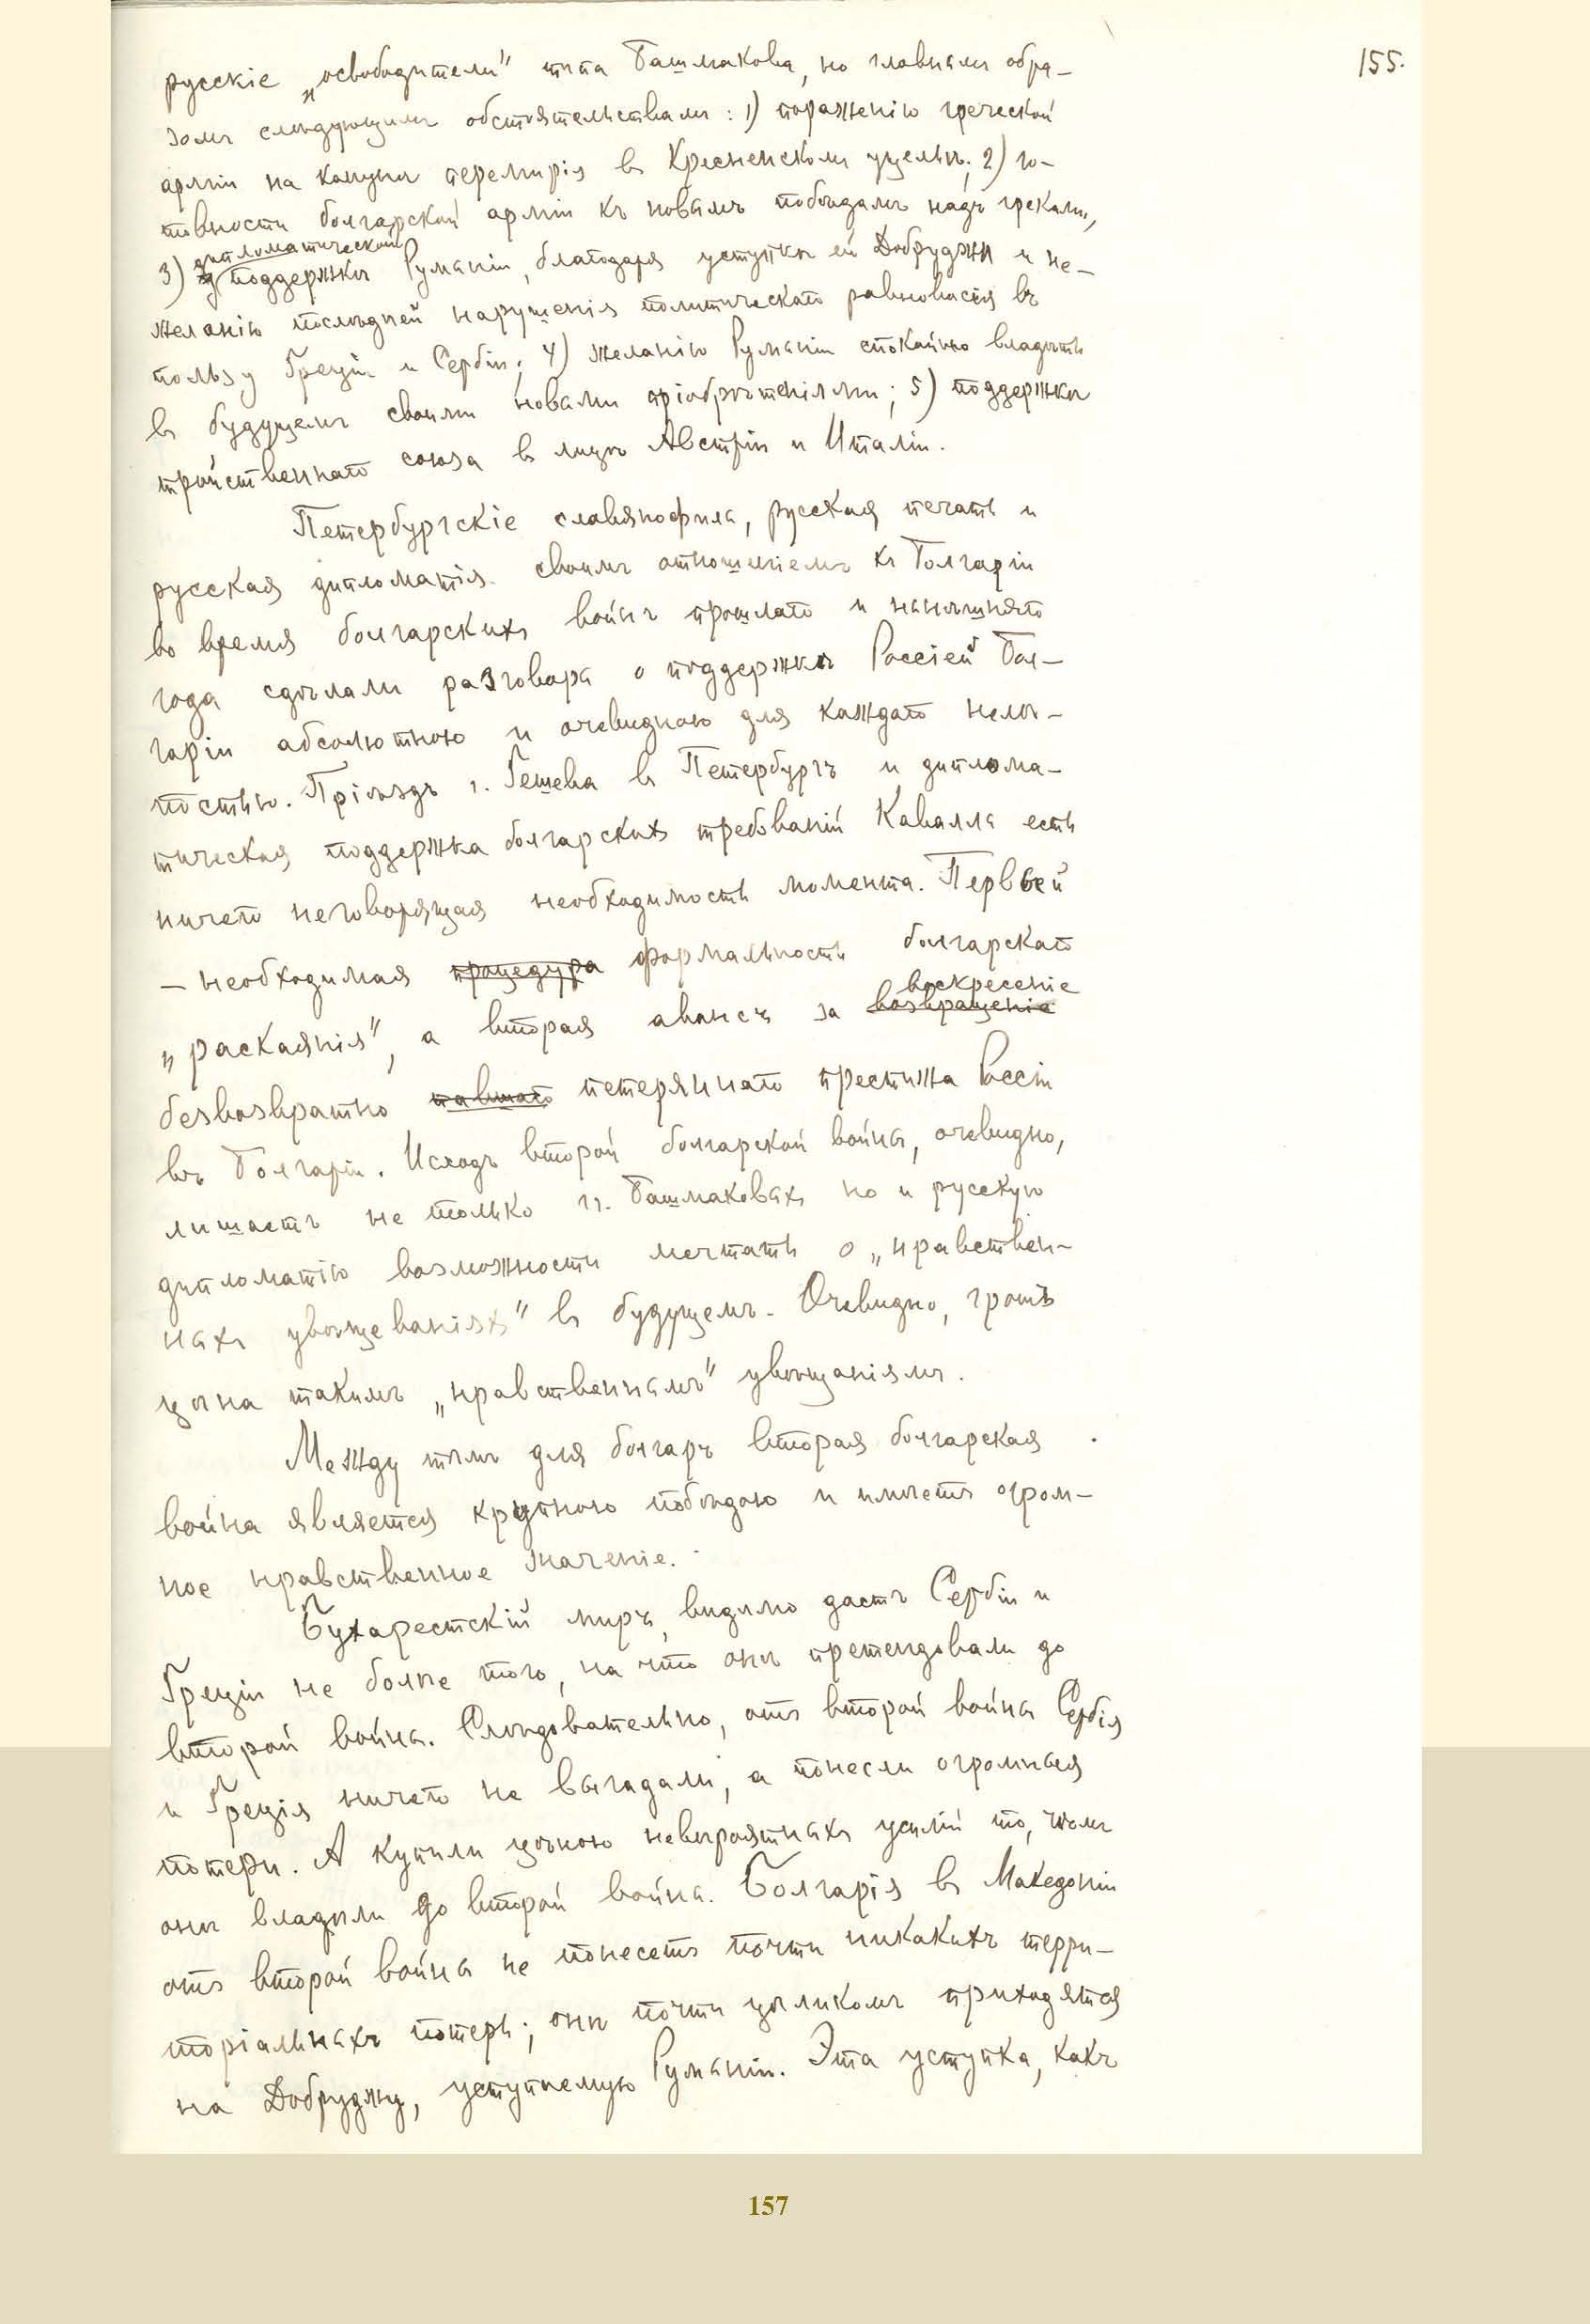 155.
русскіе „освободители" типа Башмакова, но главнымъ обра-
зомъ слѣдующимъ обстоятельствамъ: 1) пораженію греческой
арміи на канунѣ перемирія въ Кресненскомъ ущельѣ; 2) го-
товности болгарской арміи къ новымъ побѣдамъ надъ греками,
дипломатической
3) поддержкѣ Румыніи, благодаря уступкѣ ей Добруджи и не-
желанію послѣдней нарушенія политическаго равновѣсія въ
пользу Греціи и Сербіи; 4) желанію Румыніи спокойно владѣть
въ будущемъ своими новыми пріобрѣтеніями; 5) поддержкѣ
тройственнаго союза въ лицѣ Австріи и Италіи.
Петербургскіе славянофилы, русская печать и
русская дипломатія своимъ отношеніемъ къ Болгаріи
во время болгарскихъ войнъ прошлаго и нынѣшняго
года сдѣлали разговоры о поддержкѣ Россіей Бол-
гаріи абсолютною и очевидною для каждаго нелѣ-
постью. Пріѣздъ г. Гешева въ Петербургъ и диплома-
тическая поддержка болгарскихъ требованій Кавалла есть
ничего неговорящая необходимость момента. Первый
– необходимая процедура формальность болгарскаго
воскресеніе
„раскаянія", а вторая авансъ за возвращеніе
безвозвратно павшаго потеряннаго престижа Россіи
въ Болгаріи. Исходъ второй болгарской войны, очевидно,
лишаетъ не только гг. Башмаковыхъ но и русскую
дипломатію возможности мечтать о „нравствен-
ныхъ увѣщеваніяхъ" въ будущемъ. Очевидно, грошъ
цѣна такимъ „нравственнымъ" увѣщаніямъ.
Между тѣмъ для болгаръ вторая болгарская
война является крупною побѣдою и имѣетъ огром-
ное нравственное значеніе.
Бухарестскій миръ, видимо дастъ Сербіи и
Греціи не болѣе того, на что онѣ претендовали до
второй войны. Слѣдовательно, отъ второй войны Сербія
и Греція ничего не выгадали, а понесли огромныя
потери. А купили цѣною невѣроятныхъ усилій то, чѣмъ
онѣ владѣли до второй войны. Болгарія въ Македоніи
отъ второй войны не понесетъ почти никакихъ терри-
торіальныхъ потерь; онѣ почти цѣликомъ приходятся
на Добруджу, уступаемую Румыніи. Эта уступка, какъ
157